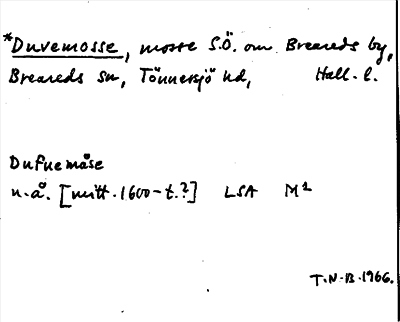 *Duvemosse, mosse S.Ö. om Breareds by,
Breareds sn, Tönnersjö hd, Hall. l.
Dufuemåse
u.å. [mitt. 1600-t.?] LSA M1
T.N-B. 1966.